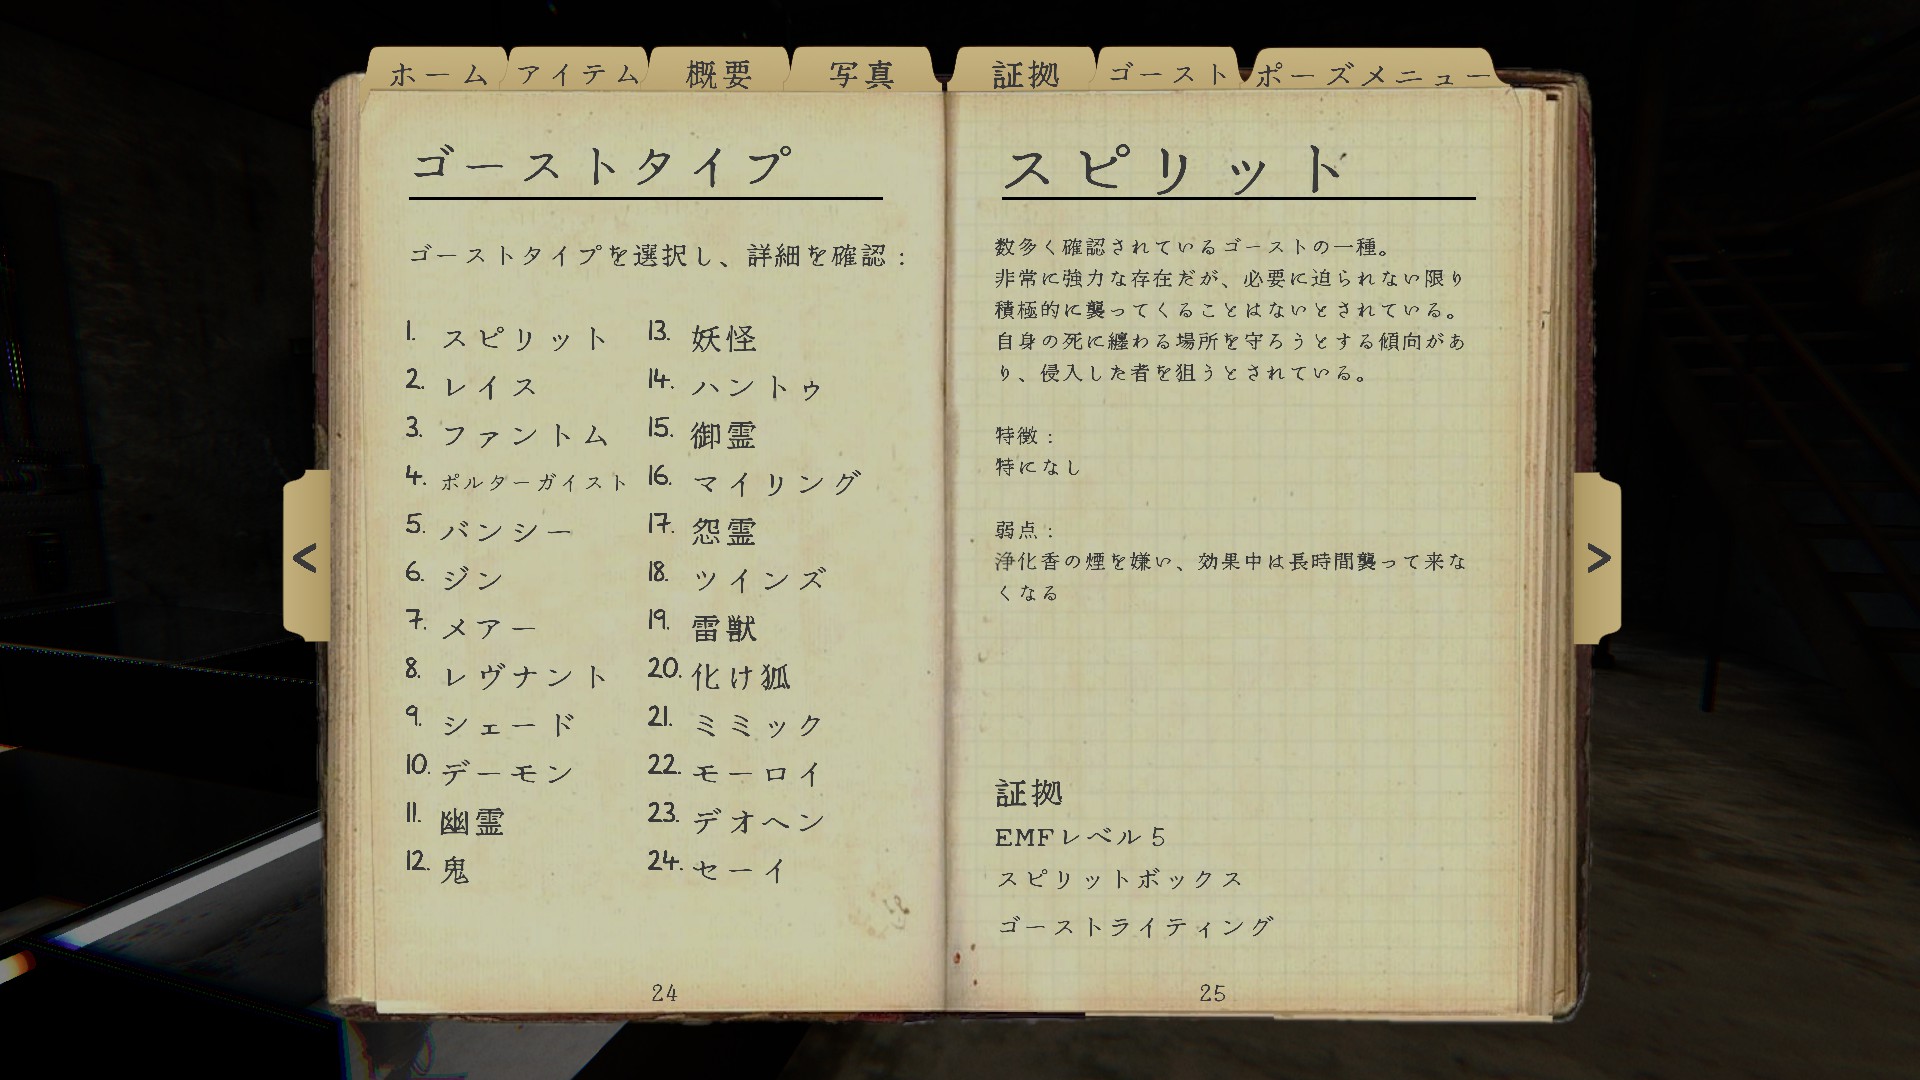 ホーム
アイテム
概要
写真
証拠
ゴースト
ポーズメニュー
ゴーストタイプ
ゴーストタイプを選択し、詳細を確認：
1. スピリット
2. レイス
3. ファントム
4. ポルターガイスト
5. バンシー
6. ジン
7. メアー
8. レヴナント
9. シェード
10. デーモン
11. 幽霊
12. 鬼
13. 妖怪
14. ハントゥ
15. 御霊
16. マイリング
17. 怨霊
18. ツインズ
19. 雷獣
20. 化け狐
21. ミミック
22. モーロイ
23. デオヘン
24. セーイ
<
24
スピリット
数多く確認されているゴーストの一種。
非常に強力な存在だが、必要に迫られない限り
積極的に襲ってくることはないとされている。
自身の死に纏わる場所を守ろうとする傾向があ
り、侵入した者を狙うとされている。
特徴：
特になし
弱点：
浄化香の煙を嫌い、効果中は長時間襲って来な
くなる
証拠
EMFレベル5
スピリットボックス
ゴーストライティング
>
25